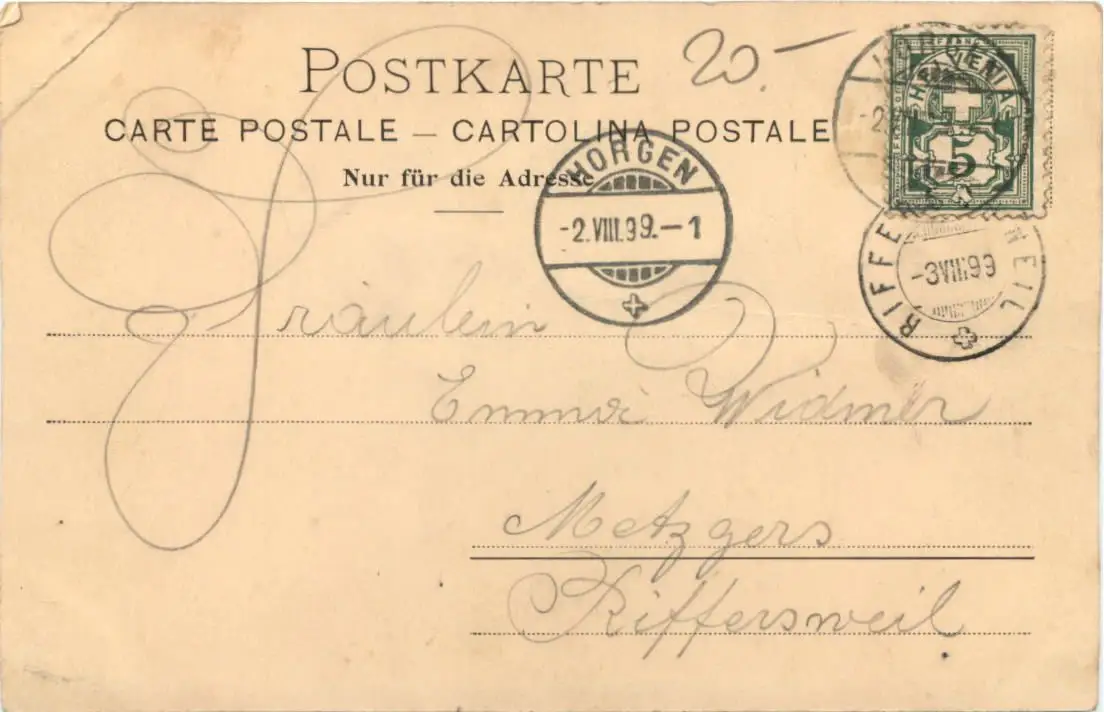 POSTKARTE
20.—
CARTE POSTALE — CARTOLINA POSTALE
Nur für die Adresse
HELVETIA
5
HORGEN
-2.VIII.99.-1
RIFFERSWEIL
-3VIII.99
Fräulein
Emma Widmer
Metzgers
Riffersweil